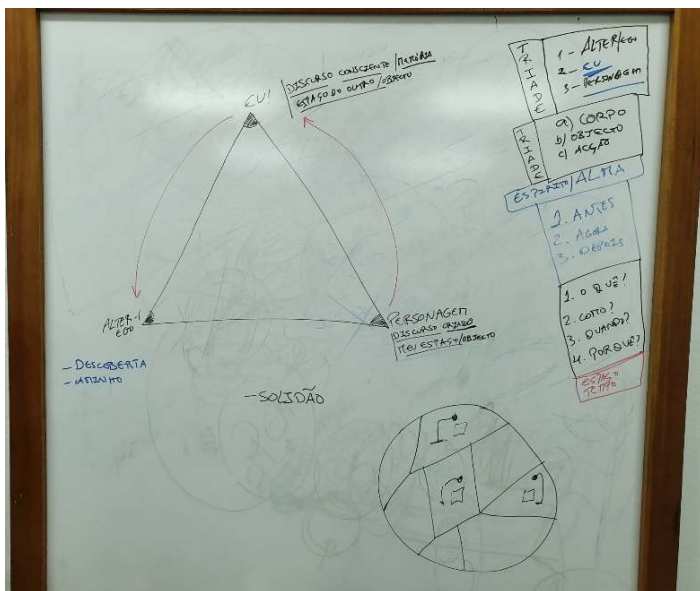 EU!
DISCURSO CONSCIENTE/MEMÓRIA
ESPAÇO DO OUTRO/OBJECTO
ALTER-
EGO
PERSONAGEM
DISCURSO CRIADO
MEU ESPAÇO/OBJECTO
- DESCOBERTA
- CAMINHO
- SOLIDÃO
TRIADE
1 - ALTER/EGO
2 - EU
3 - PERSONAGEM
TRIADE
a) CORPO
b) OBJECTO
c) ACÇÃO
ESPIRITO/ALMA
1. ANTES
2. AGORA
3. DEPOIS
1. O QUÊ?
2. COMO?
3. QUANDO?
4. PORQUÊ?
ESPAÇO
TEMPO